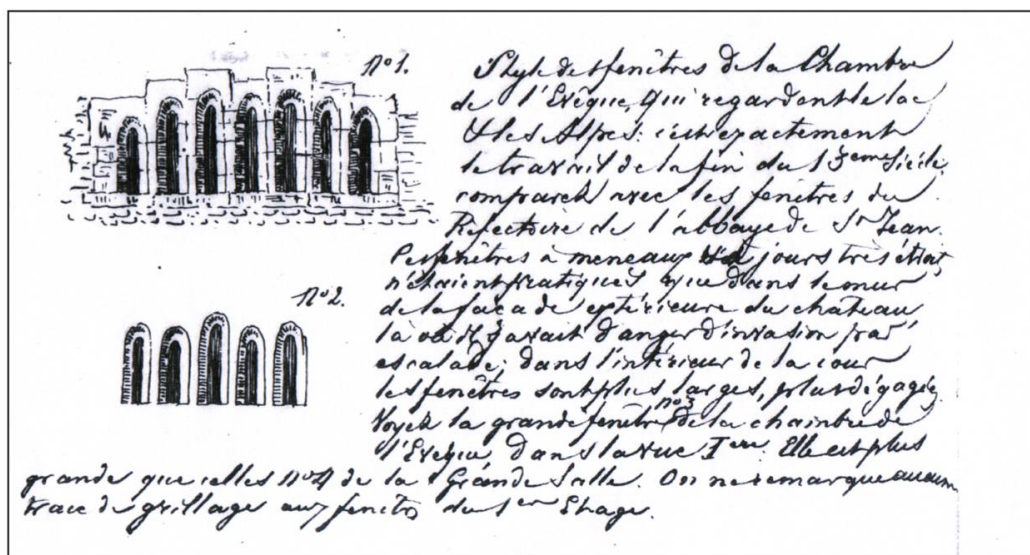 No 1.
Style des fenêtres de la Chambre
de l'Evêque, qui regardent le lac
& les Alpes: c'est exactement
le travail de la fin du 13eme siècle.
comparez avec les fenêtres du
Réfectoire de l'abbaye de St Jean.
Ces fenêtres à meneaux jours très étroits
n'étaient pratiquées que dans le mur
No 2.
de la façade extérieure du château
là où il y avait danger d'invasion par
escalade; dans l'intérieur de la cour
les fenêtres sont plus larges, plus dégagées
Voyez la grande fenêtre no 3 de la chambre de
l'Evêque, dans la vue Iere. Elle est plus
grande que celles No 4 de la Grande Salle. On ne remarque aucune
trace de grillage aux fenêtres du 1er Etage.